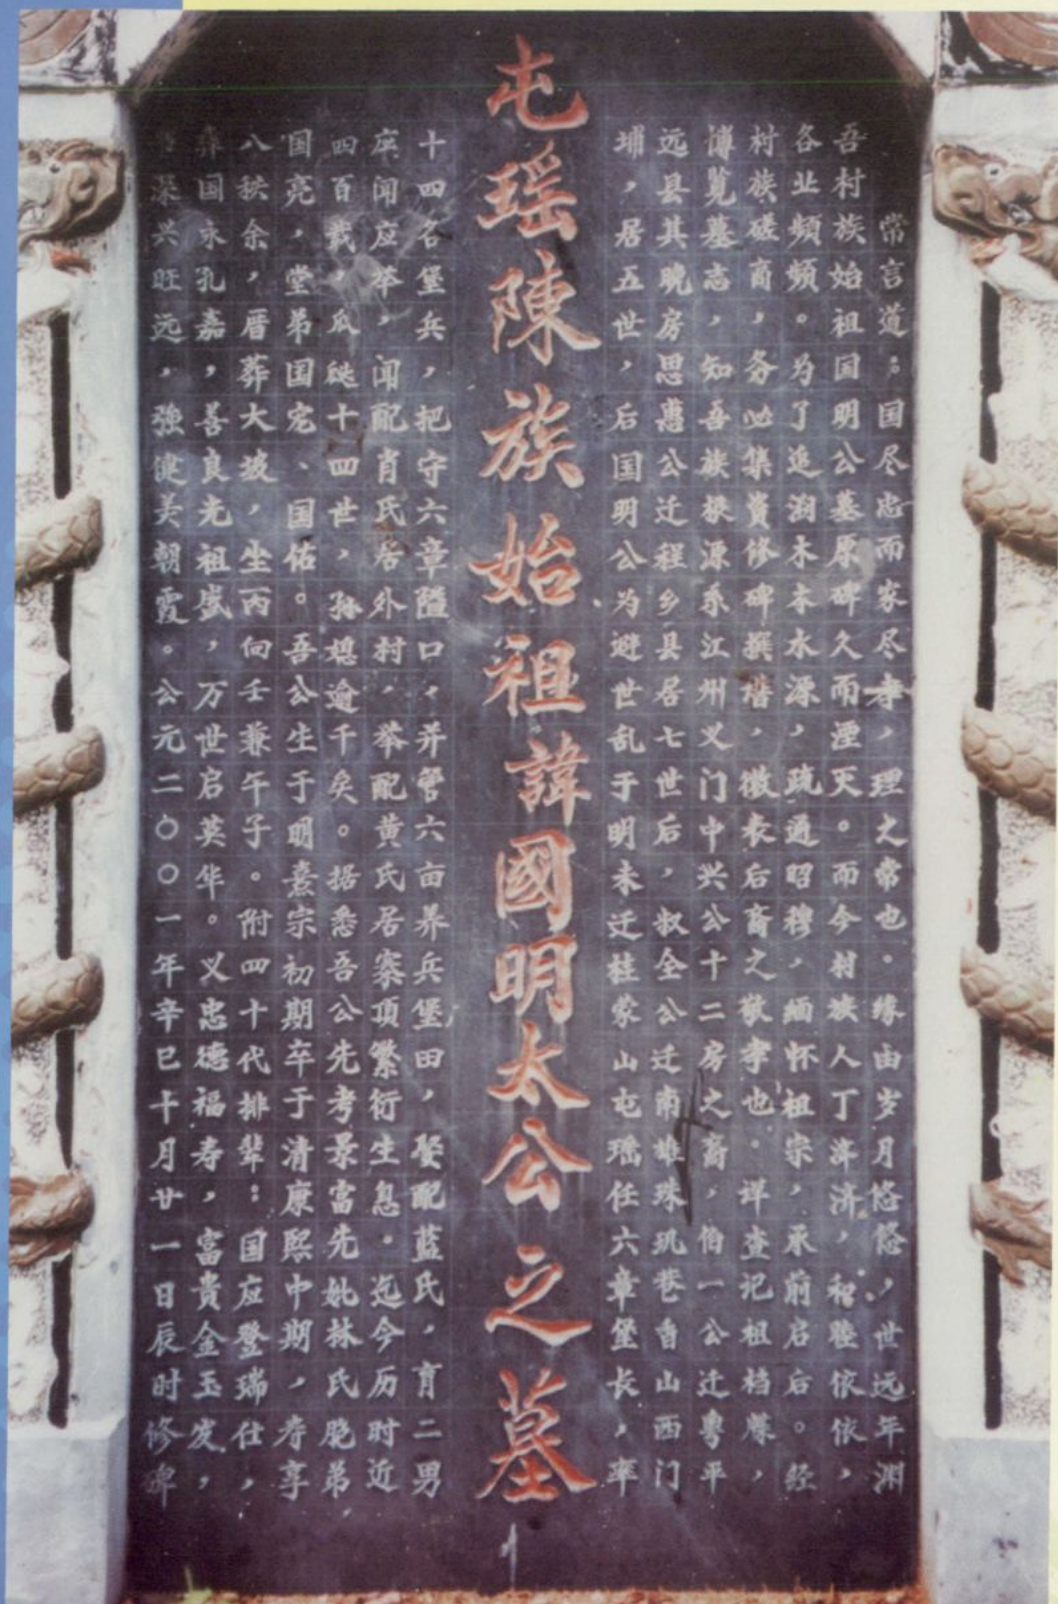 常言道：国尽忠而家尽孝，理之常也。缘由岁月悠悠，世远年渊
吾村族始祖国明公墓原碑久而湮灭。而今村族人丁济济，和睦依依，
各业频频。为了追溯木本水源，疏通昭穆，缅怀祖宗，承前启后。经
村族磋商，务必集资修碑撰谱，徽衣后裔之敬孝也。详查记祖档牒，
博览墓志，知吾族根源系江州义门中兴公十二房之裔，伯一公迁粤平
远县其晚房思惠公迁程乡县居七世后，叔全公迁南雄珠玑巷香山西门
埔，居五世，后国明公为避世乱于明末迁桂蒙山屯瑶任六章堡长，率
屯瑶陳族始祖諱國明太公之墓
十四名堡兵，把守六章隘口，并管六亩养兵堡田，娶配蓝氏，育二男
应闻应举，闻配肖氏居外村，举配黄氏居寨顶繁衍生息。迄今历时近
四百载，瓜瓞十四世，孙媳逾千矣。据悉吾公先考景富先妣林氏胞弟
国亮，堂弟国宠、国佑。吾公生于明熹宗初期卒于清康熙中期，寿享
八秩余，厝葬大坡，坐丙向壬兼午子。附四十代排辈：国应登瑞仕，
彝国永孔嘉，善良光祖盛，万世启英华。义忠德福寿，富貴金玉发，
深兴旺远，強健美朝霞。公元二〇〇一年辛巳十月廿一日辰时修碑